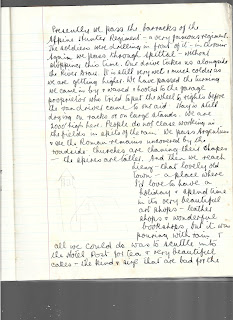 Presently we pass the barracks of the
Alpine Hunter Regiment - a very famous regiment.
The soldiers were drilling in front of it - in
Again we pass through Spittal - without
stopping this time. Our drive takes us alongside
the River Drau. It is still very wet & much colder as
we are getting higher. We have passed the turning
we came in by & waved & hooted to the garage
proprietor who tried to put the wheel to rights before
the two drivers came to our aid. Hay is still
drying on racks or on large stands. We are
2000' high here. People do not cease working in
the fields in spite of the rain. We pass
& see the Roman remains uncovered by the
roadside churches are changing their shapes
- the spires are taller. And then we reach
Lienz - that lovely old
town - a place where
I'd love to have a
holiday & spend time
in its very beautiful
art shops - leather
shops & wonderful
bookshops, but it was
pouring with rain &
all we could do was to scuttle into
the Hotel Post for tea & very beautiful
cakes - the kind & size that are bad for the